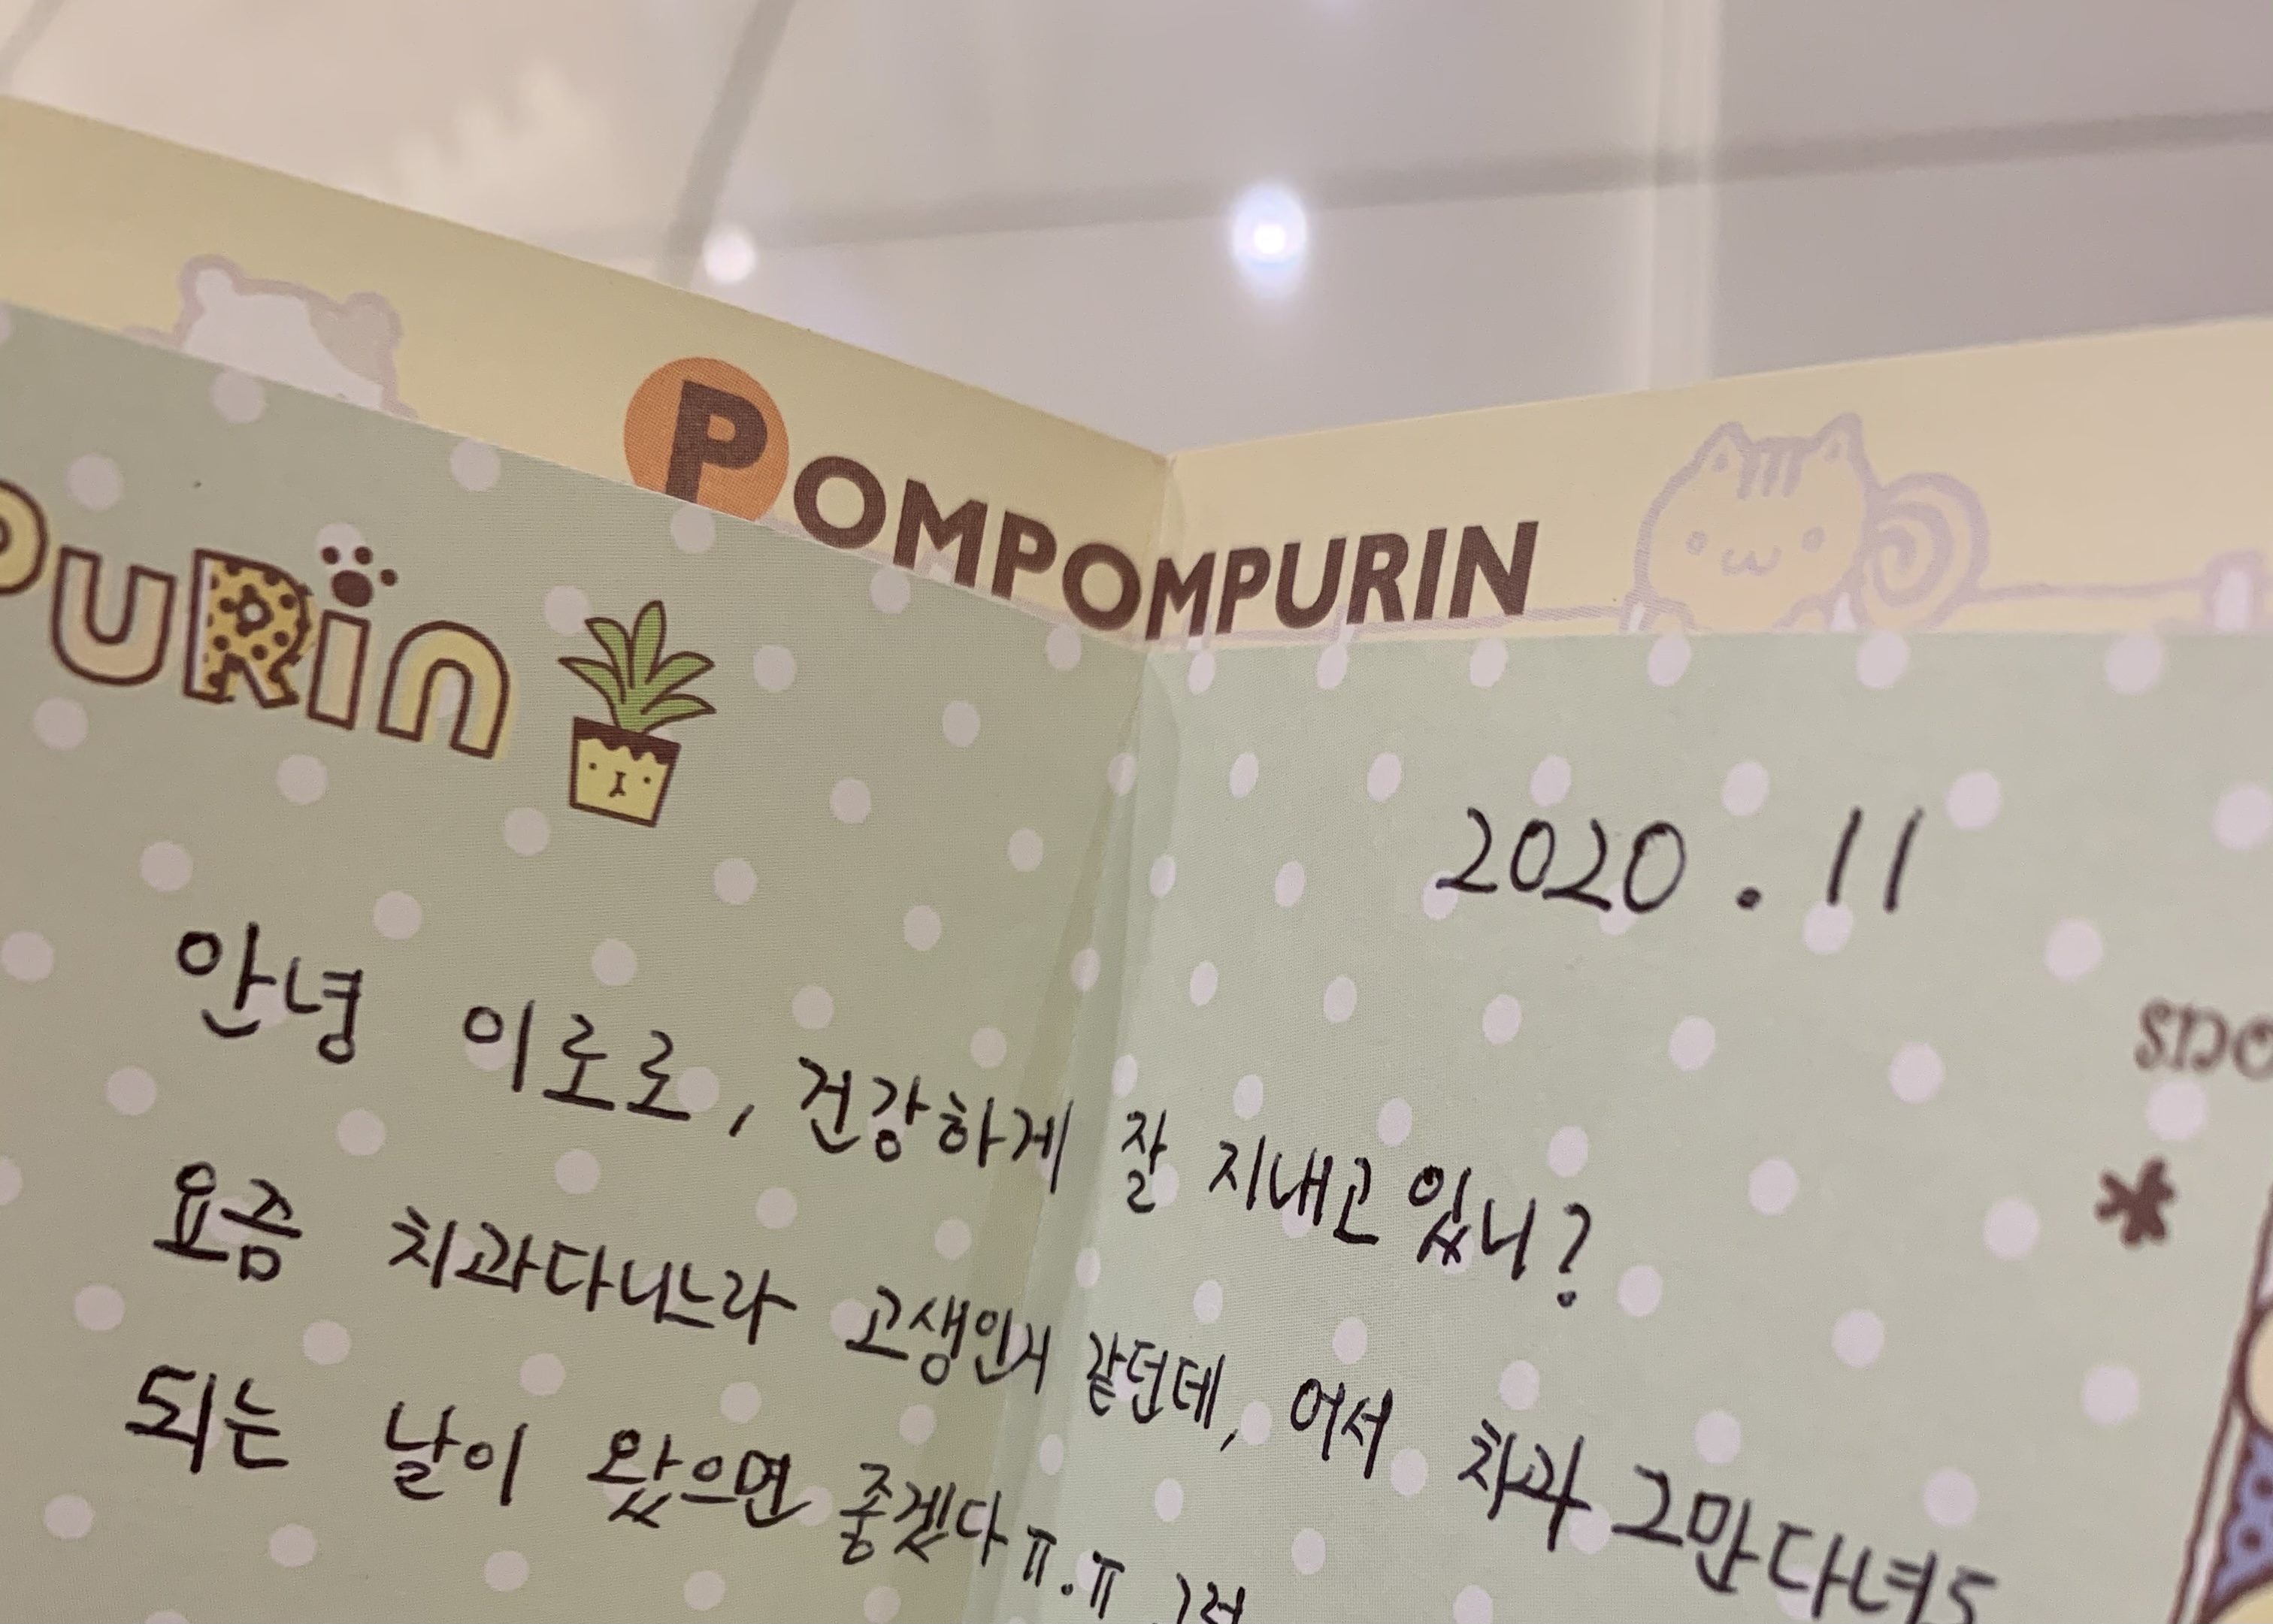 POMPOMPURIN
PURin
2020.11
안녕 이로로, 건강하게 잘 지내고 있니?
요즘 치과다니느라 고생인거 같던데, 어서 치과 그만다녀도
되는 날이 왔으면 좋겠다ㅠ.ㅠ